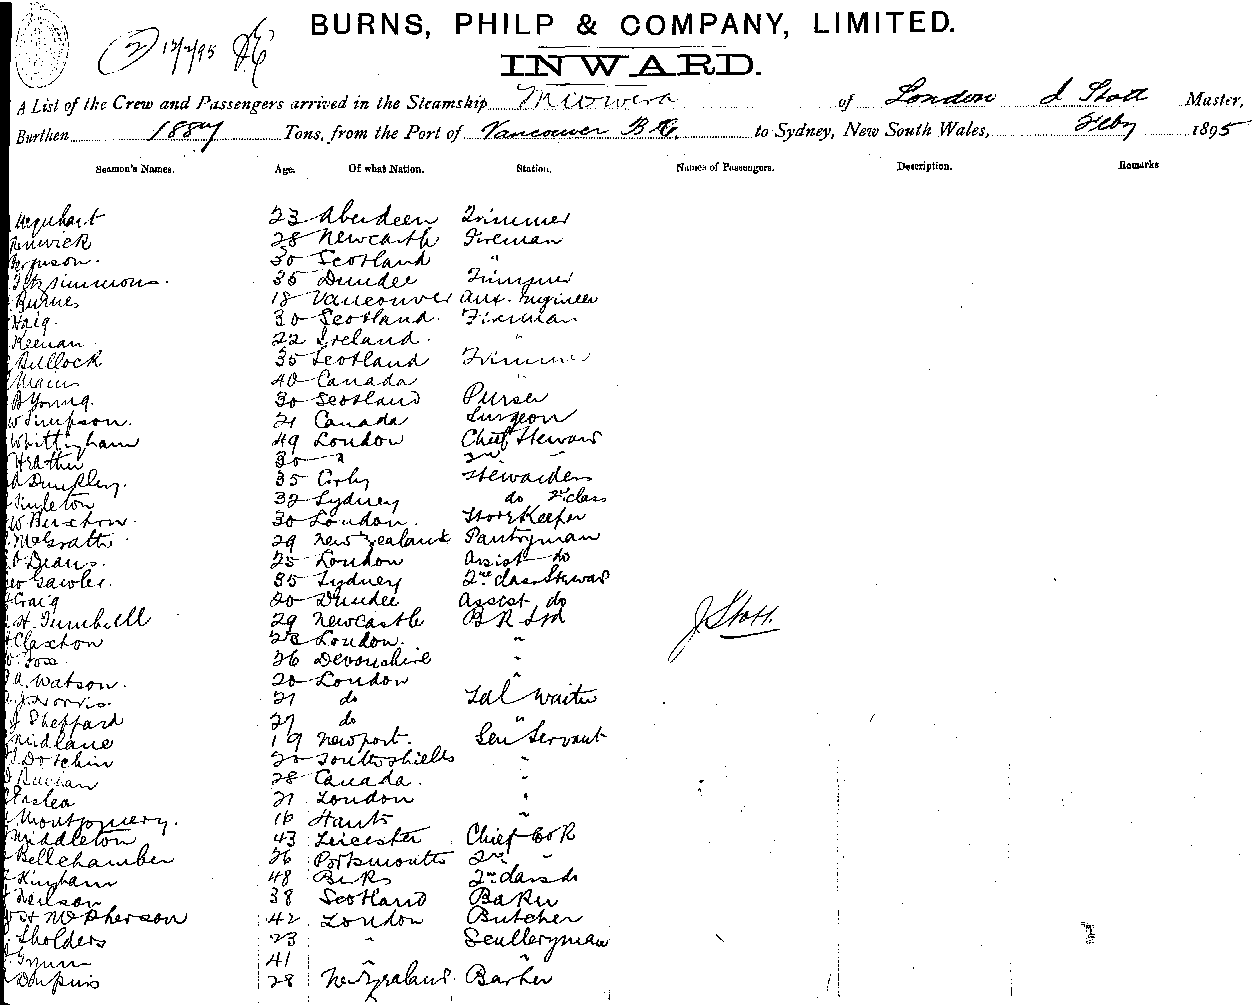 (2) 12/2/95
BURNS, PHILP & COMPANY, LIMITED.
INWARD.
A List of the Crew and Passengers arrived in the Steamship Miowera of London J Stott Master,
Burthen 1887 Tons, from the Port of Vancouver B.C. to Sydney, New South Wales, Feby 1895
Seamen's Names. Age. Of what Nation. Station. Names of Passengers. Description. Remarks
Urquhart 23 Aberdeen Trimmer
Renwick 28 Newcastle Fireman
Ferguson. 30 Scotland "
Fitzsimmons. 35 Dundee Trimmer
Burnes 18 Vancouver Asst. Engineer
Haig. 30 Scotland. Fireman
Keenan 22 Ireland. "
Bullock 35 Scotland Trimmer
40 Canada "
Young. 30 Scotland Purser
W Simpson. 21 Canada Surgeon
Whittingham 49 London Chief Steward
Heather 30 " 2nd "
Dunkley. 35 Corby Stewardess
Singleton 32 Sydney do 2nd class
W 30 London. Storekeeper
McGrath 29 New Zealand Pantryman
Deans. 25 London Assist do
Gawler. 35 Sydney 2nd class Steward
Craig 20 Dundee Assist do
H. Turnbull 29 Newcastle B R Std
Claxton 23 London. "
Foss 26 Devonshire "
A. Watson. 20 London "
J Norris. 21 do Sal Waiter
J Sheppard 27 do "
Midlane 19 Newport. Gen Servant
Dotchin 20 South Shields "
28 Canada. "
21 London "
Montgomery. 16 Hants "
Middleton 43 Leicester Chief Cook
Bellchamber 26 Portsmouth 2nd "
Kingham 48 Berks 2nd class do
Neilson 38 Scotland Baker
H McPherson 42 London Butcher
Sholders 23 " Scullery man
41 "
Dempsis 28 New Zealand. Barber
J Stott.